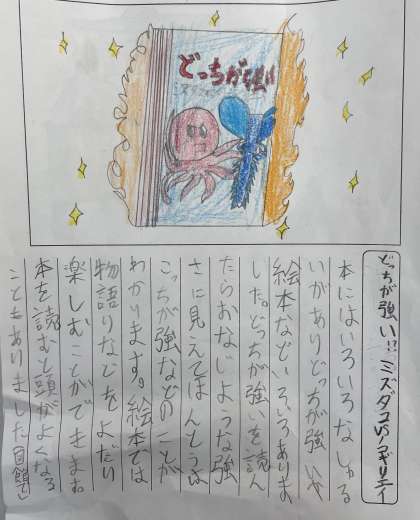 どっちが強い
どっちが強い!? ミズダコVSノコギリエイ
本にはいろいろなしゅる
いがありどっちが強いや
絵本などいろいろありま
した。どっちが強いを読ん
たらおなじような強
さに見えてほんとうは
こっちが強などのことが
わかります。絵本では
物語りなどをよだり
楽しむことができます。
本を読むと頭がよくなる
こともありました